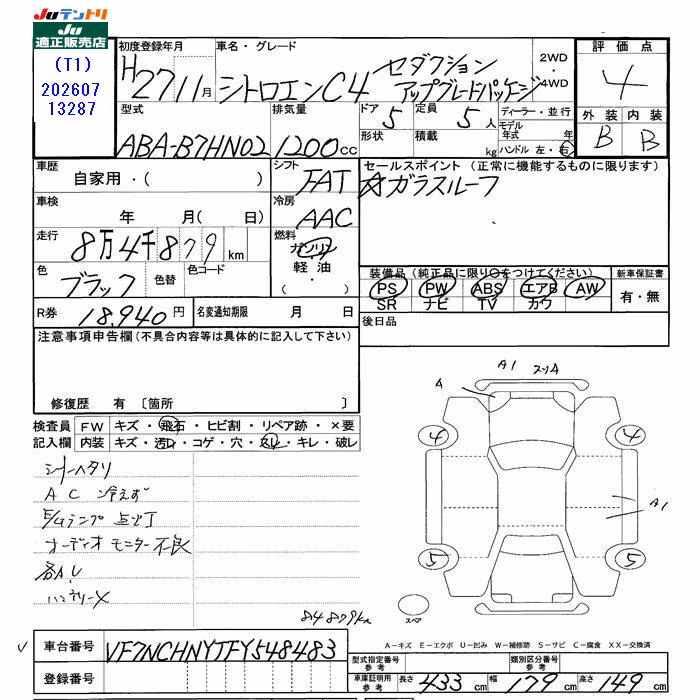 JUテントリ
JU
適正販売店
(T1)
202607
13287
初度登録年月
H27 11月
車名・グレード
シトロエンC4 セダクション
アップグレードパッケージ
2WD
・
4WD
評価点
4
外装 内装
B B
型式
ABA-B7HN02
排気量
1200cc
ドア 5
形状
定員 5人
積載 kg
ディーラー・並行
モデル年式 年
ハンドル 左・右
車歴
自家用・( )
シフト
FAT
セールスポイント (正常に機能するものに限ります)
☆ガラスルーフ
車検
年 月( 日)
冷房
AAC
走行
8万4千879km
燃料
ガソリン
軽油
( ・ )
色
ブラック
色替
色コード
装備品 (純正品に限り○をつけてください)
PS PW ABS エアB AW
SR ナビ TV カワ
新車保証書
有・無
R券 18,940円
名変通知期限 月 日
後日品
注意事項申告欄 (不具合内容等は具体的に記入して下さい)
修復歴 有 〔箇所 〕
検査員 FW キズ・飛石・ヒビ割・リペア跡・×要
記入欄 内装 キズ・汚レ・コゲ・穴・スレ・キレ・破レ
シートヘタリ
AC 冷えず
E/Gランプ 点灯
オーディオ モニター不良
各A.U
84879km
A
A1
スリA
4
4
A1
5
5
スペア
A-キズ E-エクボ U-凹み W-補修跡 S-サビ C-腐食 XX-交換済
車台番号 VF7NCHNYTFY548483
登録番号
型式指定番号 参考
類別区分番号 参考
車庫証明用 参考 長さ 433cm 幅 179cm 高さ 149cm